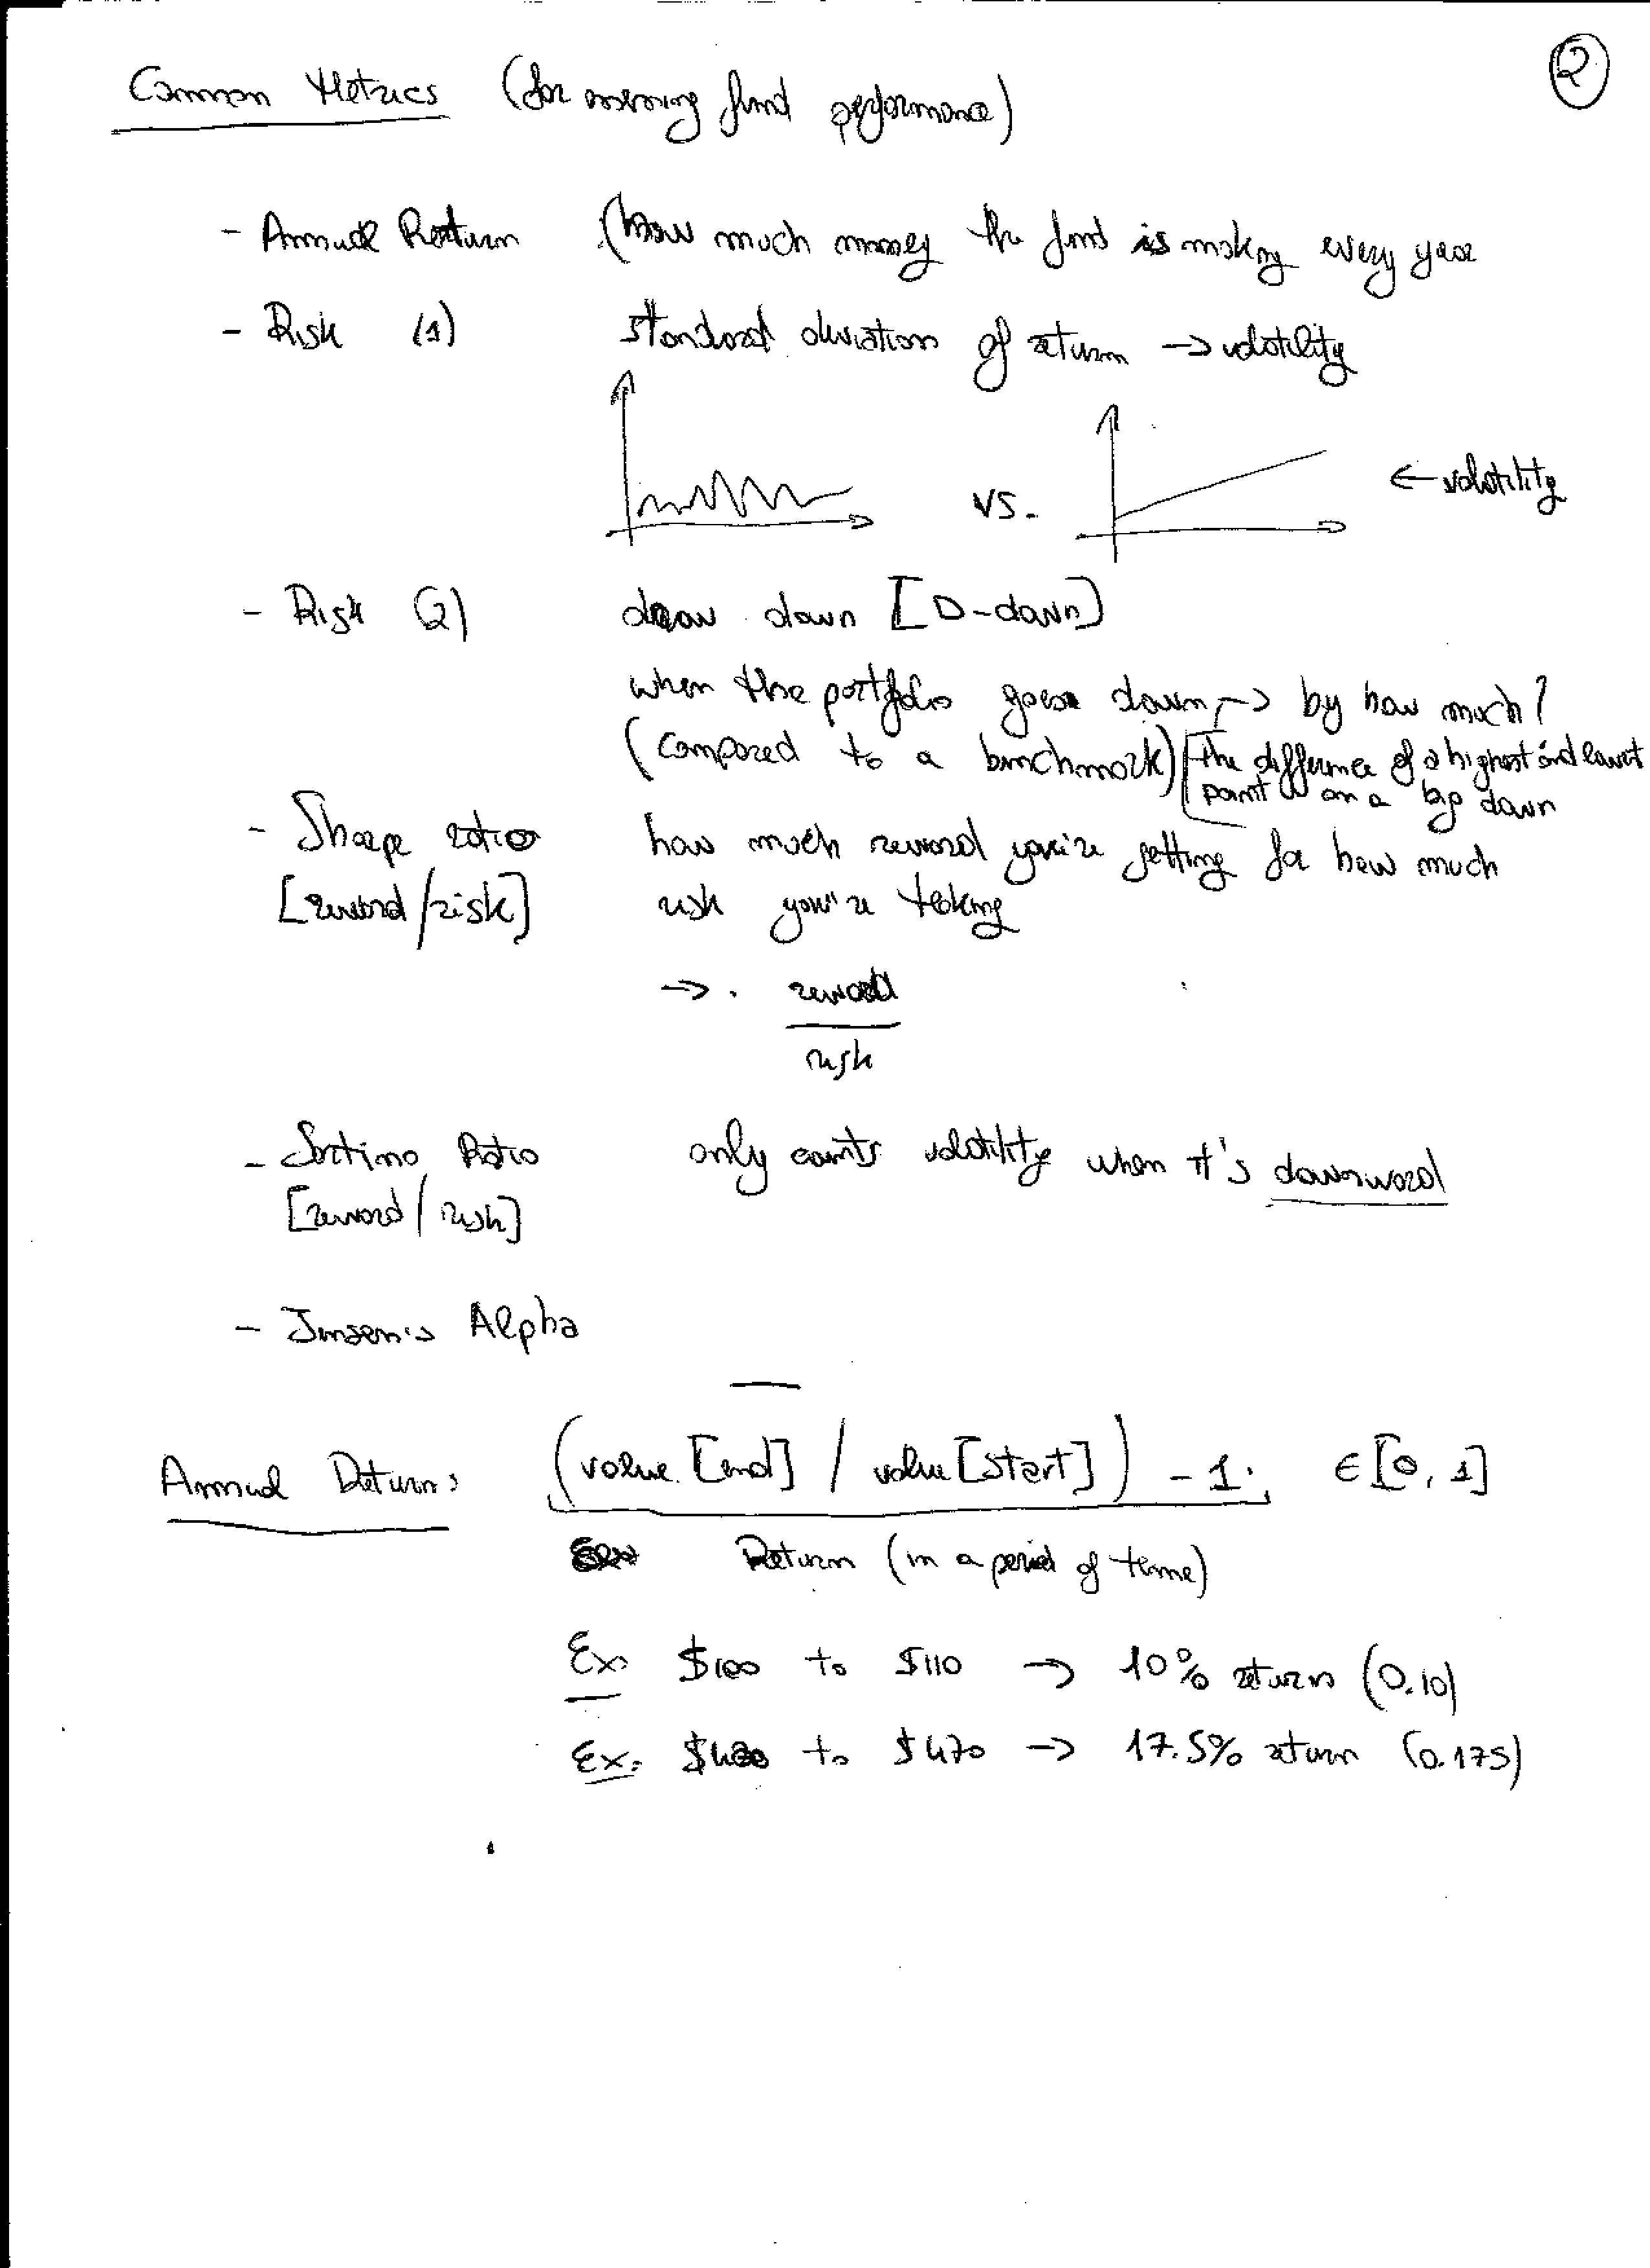 2
Common Metrics (for assessing fund performance)
- Annual Return (how much money the fund is making every year
- Risk (1) standard deviation of return -> volatility
vs. <- volatility
- Risk (2) draw down [D-down]
when the portfolio goes down, -> by how much?
(compared to a benchmark) [the difference of a highest and lowest
point on a big down
- Sharpe ratio how much reward you're getting for how much
[reward/risk] risk you're taking
-> reward
risk
- Sortino Ratio only counts volatility when it's downward
[reward/risk]
- Jensen's Alpha
Annual Return: (value [end] / value [start]) - 1. ∈ [0, 1]
Return (in a period of time)
Ex: $100 to $110 -> 10% return (0.10)
Ex: $400 to $470 -> 17.5% return (0.175)